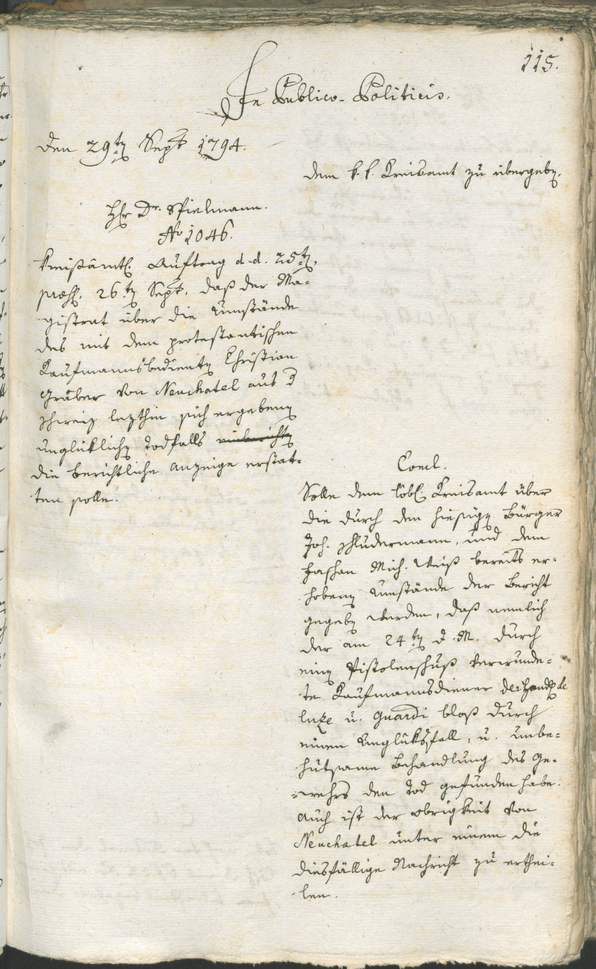 115.
In Publico-Politicis.
Den 29ten Sept 1794.
dem k. k. Kreisamt zu übergeben.
Hr Dr. Spielmann.
No 1046.
Kreisämtl. Auftrag d. d. 25ten,
præs. 26ten Sept. daß der Ma-
gistrat über die Umstände
des mit dem protestantischen
Kaufmannsbedienten Christian
Gruber von Neuchatel aus d
Schweiz lezthin sich ergebenen
unglüklichen Todfalls
die berichtliche Anzeige erstat-
ten solle.
Concl.
Solle dem löbl. Kreisamt über
die durch den hiesigen Bürger
Joh. Schludermann, und dem
Mich. Weiß bereits er-
hobenen Umstände der Bericht
gegeben werden, daß nemlich
der am 24ten d. M. durch
einen Pistolenschuß verwunde-
te Kaufmannsdiener der
u. Guardi bloß durch
einen Unglüksfall, u. unbe-
hutsame Behandlung des Ge-
wehrs den Tod gefunden habe.
Auch ist der Obrigkeit von
Neuchatel unter einem die
diesfällige Nachricht zu erthei-
len.